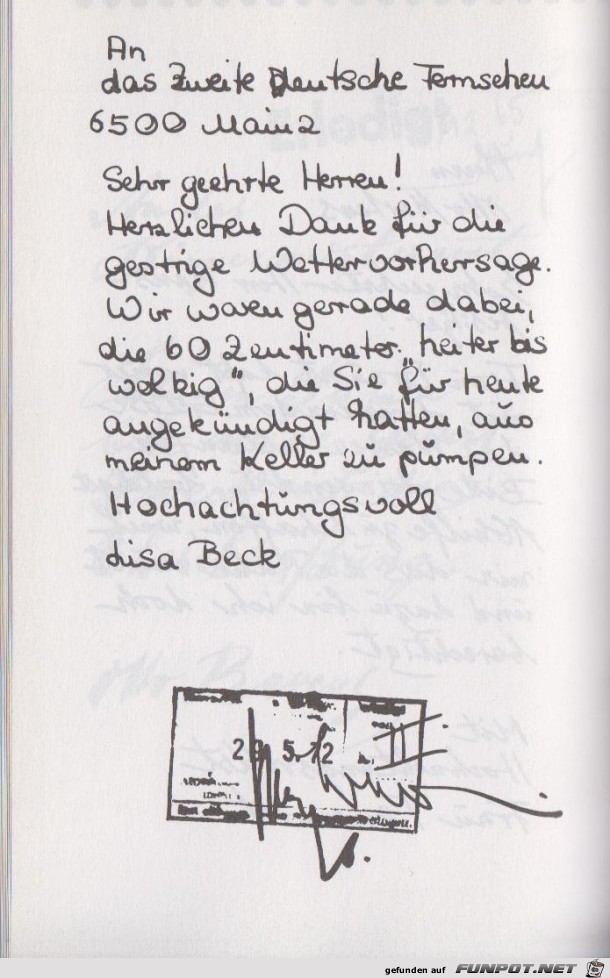 An
das Zweite Deutsche Fernsehen
6500 Mainz
Sehr geehrte Herren!
Herzlichen Dank für die
gestrige Wettervorhersage.
Wir waren gerade dabei,
die 60 Zentimeter „heiter bis
wolkig“, die Sie für heute
angekündigt hatten, aus
meinem Keller zu pumpen.
Hochachtungsvoll
Lisa Beck
gefunden auf FUNPOT.NET